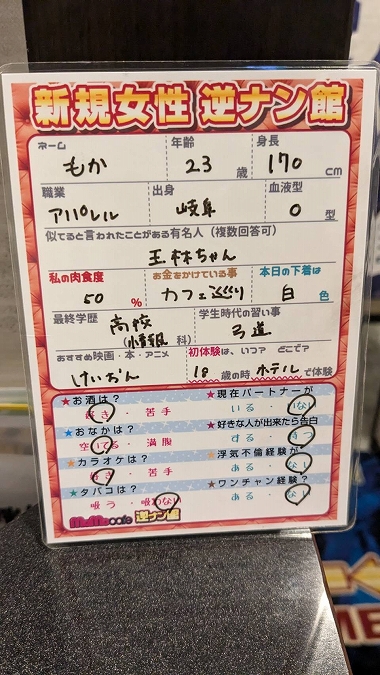 新規女性 逆ナン館
ネーム 年齢 身長
もか 23歳 170cm
職業 出身 血液型
アパレル 岐阜 O型
似てると言われたことがある有名人(複数回答可)
王林ちゃん
私の肉食度 お金をかけている事 本日の下着は
50% カフェ巡り 白色
最終学歴 学生時代の習い事
高校 弓道
科)
おすすめ映画・本・アニメ 初体験は、いつ? どこで?
けいおん 18歳の時、ホテルで体験
★お酒は? ★現在パートナーが
好き・苦手 いる・いない
★おなかは? ★好きな人が出来たら告白
空いてる・満腹 する・まつ
★カラオケは? ★浮気不倫経験が
好き・苦手 ある・ない
★タバコは? ★ワンチャン経験?
吸う・吸わない ある・ない
MoMocafe 逆ナン館